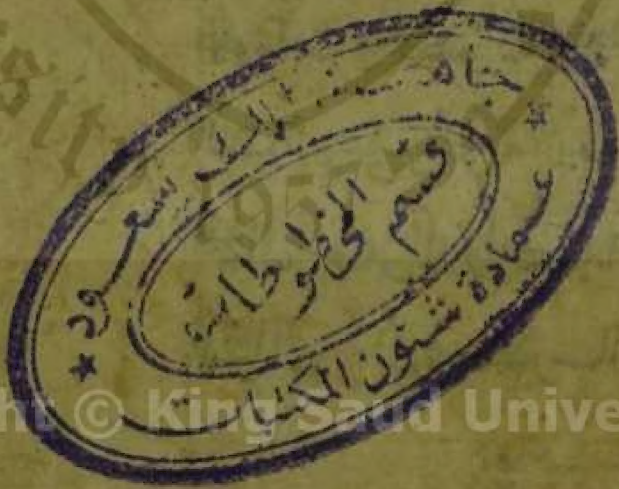 جامعة الملك سعود
قسم المخطوطات
عمادة شئون المكتبات
ht © King Saud Unive
1957